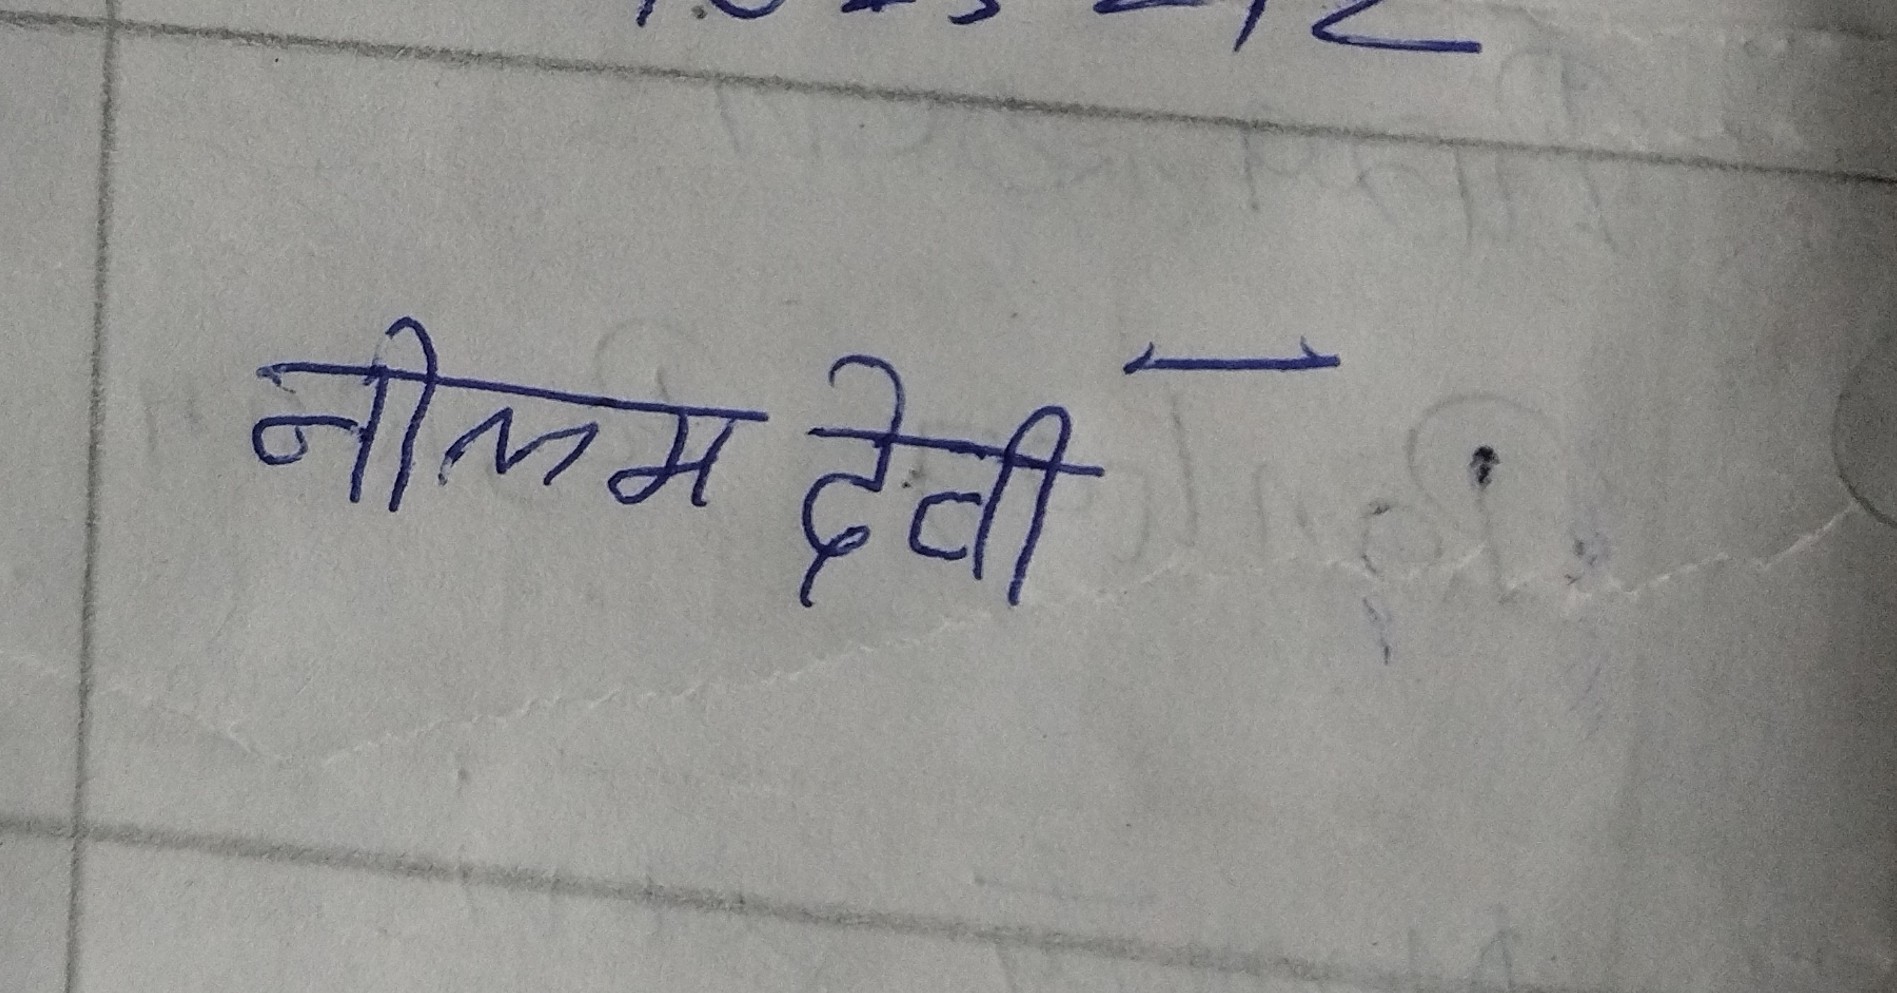 नीलम देवी —